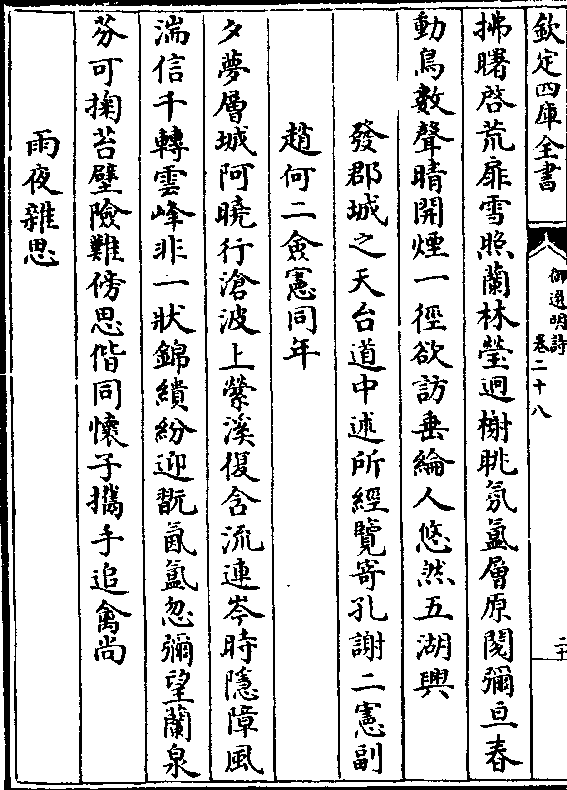 欽定四庫全書
御選明詩
卷二十八
二十
拂曙啓荒扉雪照蘭林瑩迥榭眺氛氳層原閱彌亘春
動鳥數聲晴開煙一徑欲訪垂綸人悠然五湖興
發郡城之天台道中述所經覽寄孔謝二憲副
趙何二僉憲同年
夕夢層城阿曉行滄波上縈溪復含流連岑時隱障風
湍信千轉雲峰非一狀錦繢紛迎翫氤氳忽彌望蘭泉
芬可掬苔壁險難傍思偕同懷子攜手追禽尚
雨夜雜思